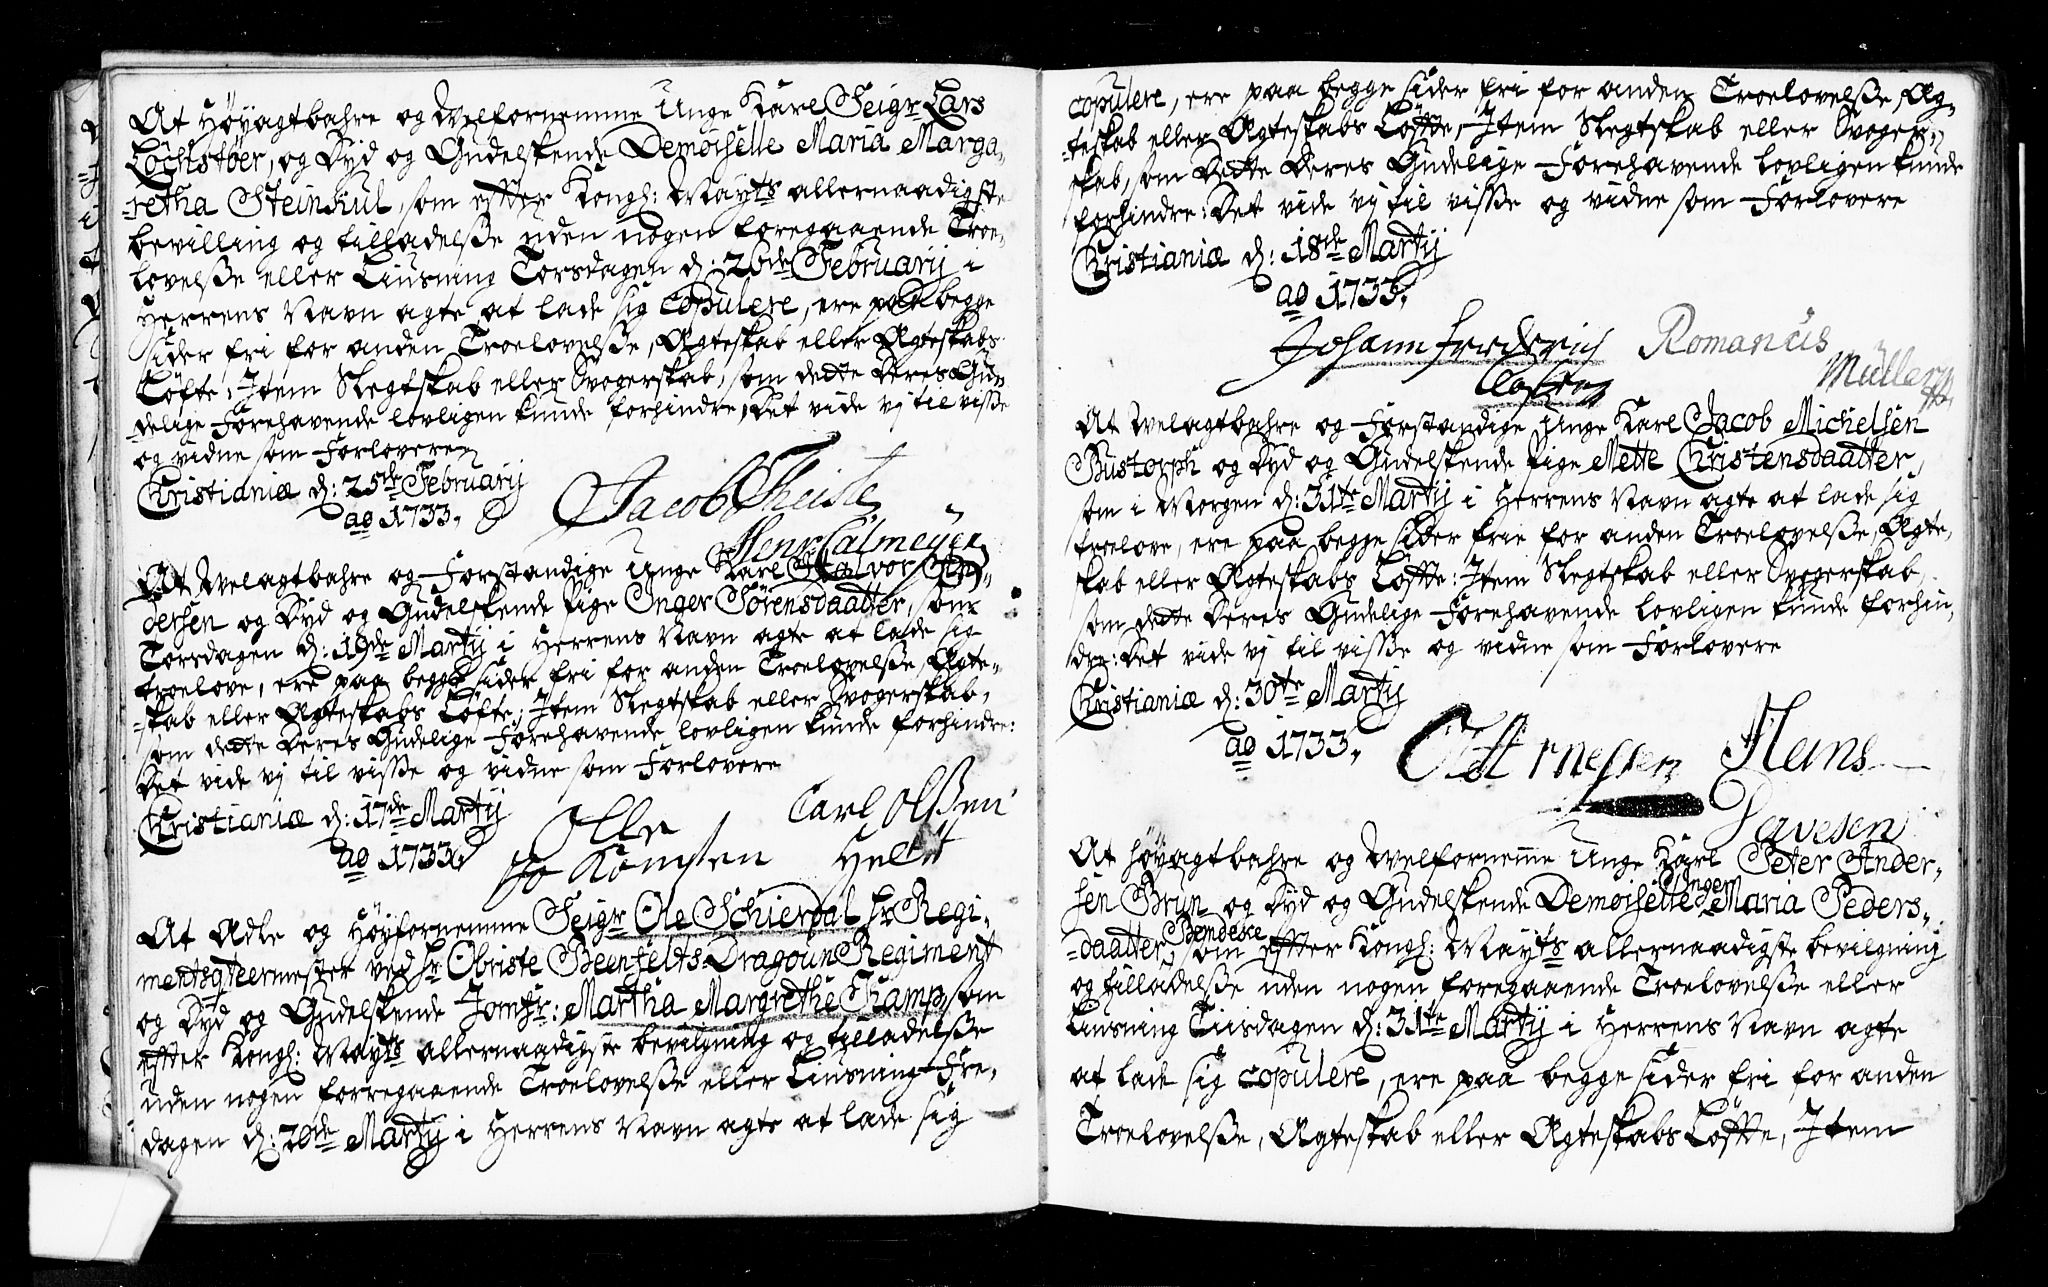 At Höyagtbahre og Welfornemme Unge Karl Seigr Lars
Lochstöer, og Dyd og Gudelskende Demoiselle Maria Marga-
-retha Steinkul, som efter Kongl: Mayts allernaadigste
bevilling og tilladelsße uden nogen foregaaende Troe-
lovelsße eller Liusning Torsdagen d: 26de February i
Herrens Navn agte at lade sig copulere, ere paa begge
sider fri for anden Troelovelsße, Ægteskab eller Ægteskabs
Löfte, Item Slegtskab eller Svogerskab, som dette Deres Gu-
-delige Forehavende lovligen kunde forhindre, Det vide vj til visße
og vidne som Forlovere
Christianiæ d: 25de February
ao 1733.
Jacob Theiste
Henr Calmeÿer
At Welagtbahre og Forstandige Unge Karl Halvor An-
dersen og Dyd og Gudelskende Pige Inger Sörensdaatter, som
Torsdagen d: 19de Martij i Herrens Navn agte at lade sig
troelove, ere paa begge sider fri for anden Troelovelsße, Ægte-
-skab eller Ægteskabs Löfte; Item Slegtskab eller Svogerskab,
som dette Deres Gudelige Forehavende lovligen kunde forhindre:
Det vide vj til visße og vidne som Forlovere
Christianiæ d: 17de Martij
ao 1733.
Olle
Carl Olßen
At Ædle og Höyfornemme Seigr Ole Schierdal hr Regi-
mentsqteermester ved hr Obriste Beenfelts Dragoun Regiment
og Dyd og Gudelskende Jomfr: Martha Margrethe Kamp, som
efter Kongl: Mayts allernaadigste bevilgning og tilladelsße
uden nogen forregaaende Troelovelsße eller Liusning Fre-
dagen d: 20de Martij i Herrens Navn agte at lade sig
copulere, ere paa begge sider fri for anden Troelovelsße, Æg-
-teskab eller Ægteskabs Löfte, Item Slegtskab eller Svoger-
skab, som dette Deres Gudelige Forehavende lovligen kunde
forhindre: Det vide vj til visße og vidne som Forlovere
Christianiæ d: 18de Martij
ao 1733.
Johann Friederich Romanus
Müller
At Welagtbahre og Forstandige Unge Karl Jacob Michelsen
Bustorph og Dyd og Gudelskende Pige Mette Christensdaatter,
som i Morgen d: 31te Martij i Herrens Navn agte at lade sig
troelove, ere paa begge sider frie for anden Troelovelsße, Ægte-
skab eller Ægteskabs Löfte: Item Slegtskab eller Svogerskab,
som dette Deres Gudelige Forehavende lovligen kunde forhin-
dre: Det vide vj til visße og vidne som Forlovere
Christianiæ d: 30te Martij
ao 1733.
Hans
At höyagtbahre og Welforneme Unge Karl Peter Ander-
sen Brun og Dyd og Gudelskende Demoiselle Inger Maria Peders-
-daatter Bendeke, som efter Kongl: Mayts allernaadigste bevilgning
og tilladelsße uden nogen foregaaende Troelovelsße eller
Liusning Tiisdagen d: 31te Martij i Herrens Navn agte
at lade sig copulere, ere paa begge sider fri for anden
Troelovelsße, Ægteskab eller Ægteskabs Löfte, Item